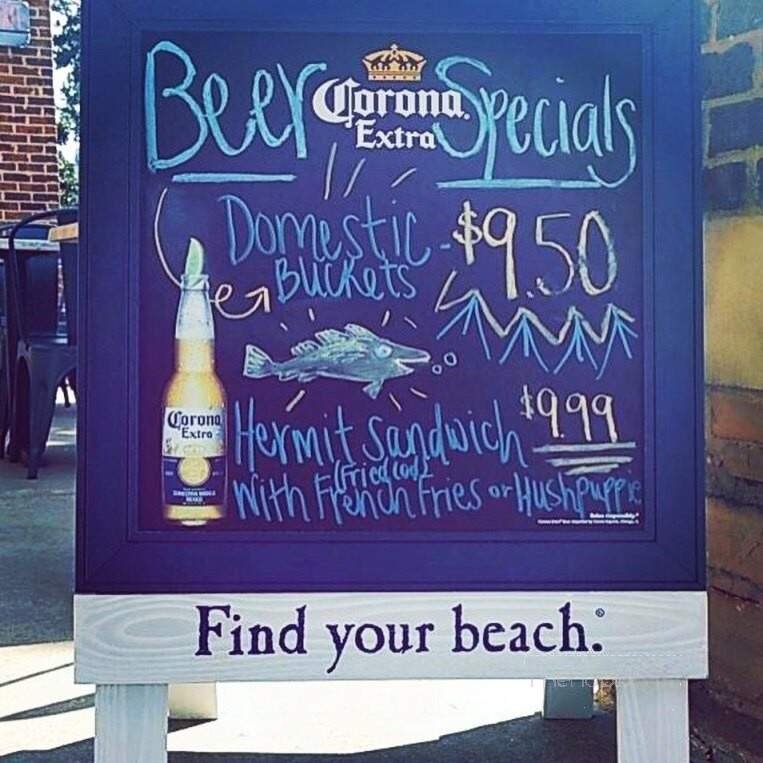 Beer Corona Specials
Extra
Domestic - $9.50
Buckets
Hermit Sandwich $9.99
(Fried Cod)
With French Fries or Hushpuppie
Corona
Extra
Find your beach.®